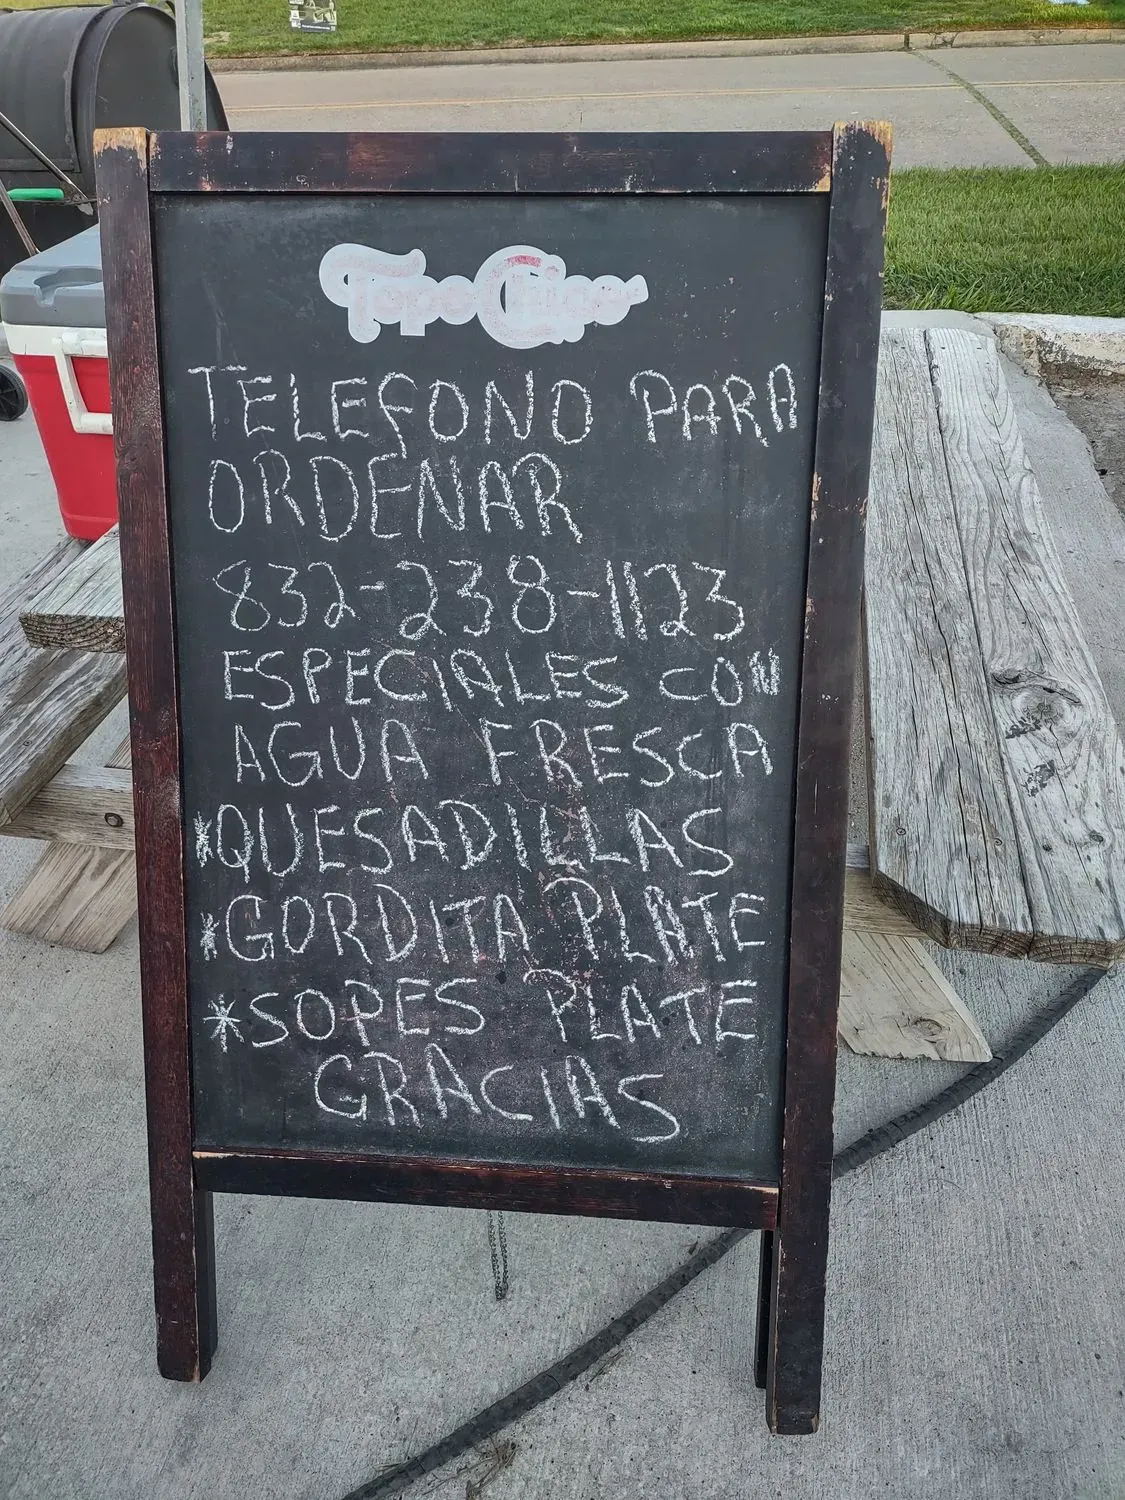 Topo Chico
TELEFONO PARA
ORDENAR
832-238-1123
ESPECIALES CON
AGUA FRESCA
*QUESADILLAS
*GORDITA PLATE
*SOPES PLATE
GRACIAS